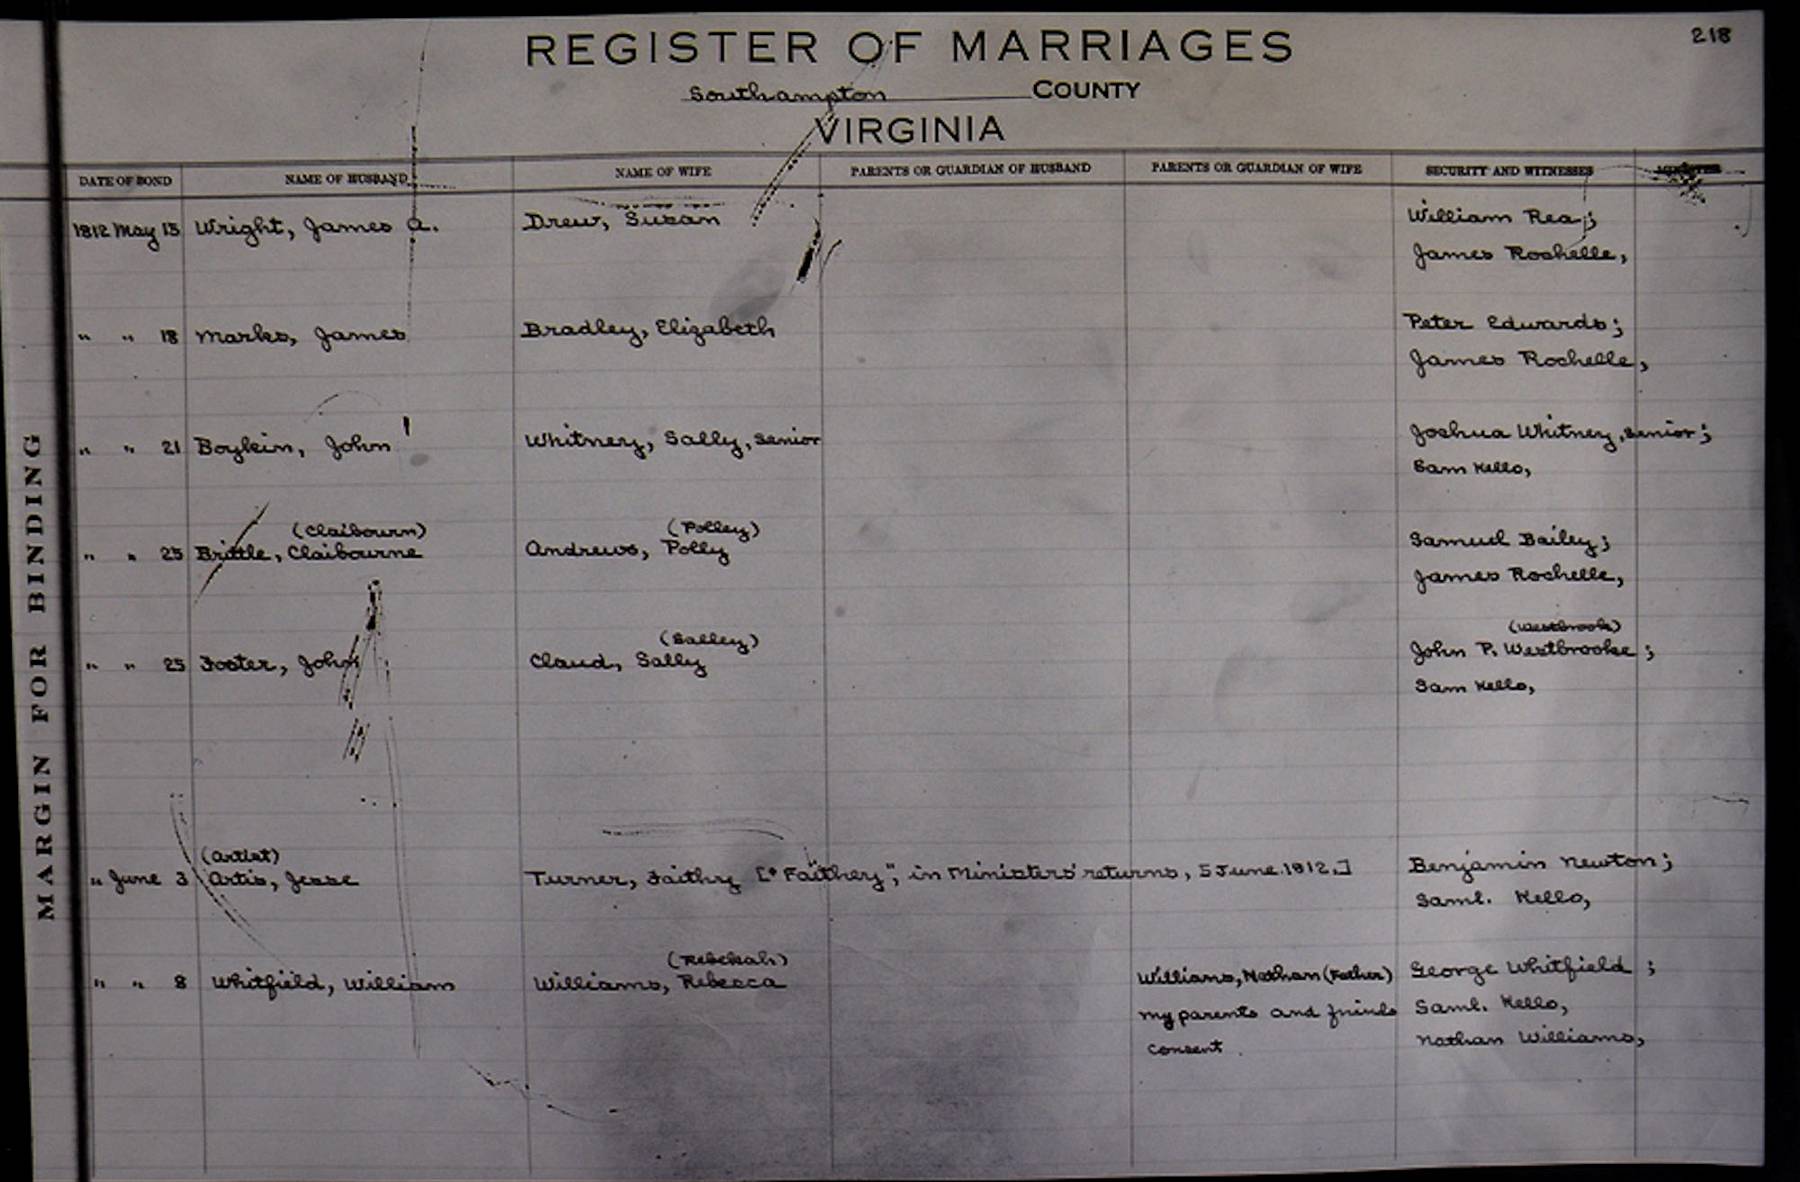 218
REGISTER OF MARRIAGES
Southampton COUNTY
VIRGINIA
DATE OF BOND NAME OF HUSBAND NAME OF WIFE PARENTS OR GUARDIAN OF HUSBAND PARENTS OR GUARDIAN OF WIFE SECURITY AND WITNESSES MINISTER
1812 May 15 Wright, James A. Drew, Susan William Rea;
James Rochelle,
" " 18 Marks, James Bradley, Elizabeth Peter Edwards;
James Rochelle,
" " 21 Boykin, John Whitney, Sally, Senior Joshua Whitney, Senior;
Sam Kello,
(Claibourn) (Polley)
" " 25 Brittle, Claibourne Andrews, Polly Samuel Bailey;
James Rochelle,
(Salley) (Westbrook)
" " 25 Foster, John Claud, Sally John P. Westbrooke;
Sam Kello,
(Artist)
" June 3 Artis, Jesse Turner, Faithy [* "Faithey", in Ministers' returns, 5 June 1812.] Benjamin Newton;
Saml. Kello,
(Rebekah)
" " 8 Whitfield, William Williams, Rebecca Williams, Nathan (Father) George Whitfield;
my parents and friends Saml. Kello,
consent. Nathan Williams,
MARGIN FOR BINDING